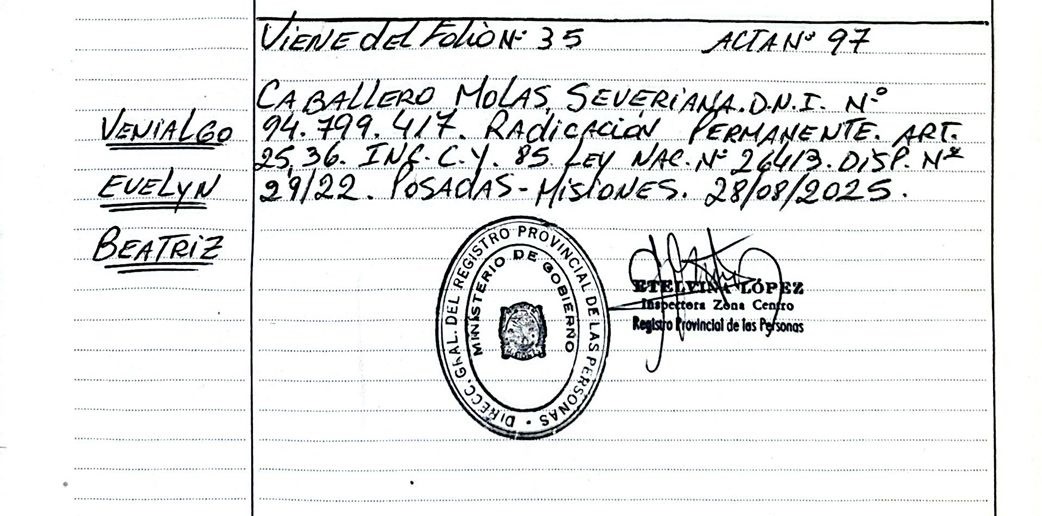 VIENE del Folio Nº 35 ACTA Nº 97
CABALLERO MOLAS, SEVERIANA. D.N.I. Nº
94.799.417. RADICACIÓN PERMANENTE. ART.
25, 36. INC. C. Y. 85. LEY NAC. Nº 26413. DISP. Nº
29/22. POSADAS - MISIONES. 28/08/2025.
VENIALGO
EVELYN
BEATRIZ
DIRECC. GRAL. DEL REGISTRO PROVINCIAL DE LAS PERSONAS
MINISTERIO DE GOBIERNO
ETELVINA LÓPEZ
Inspectora Zona Centro
Registro Provincial de las Personas